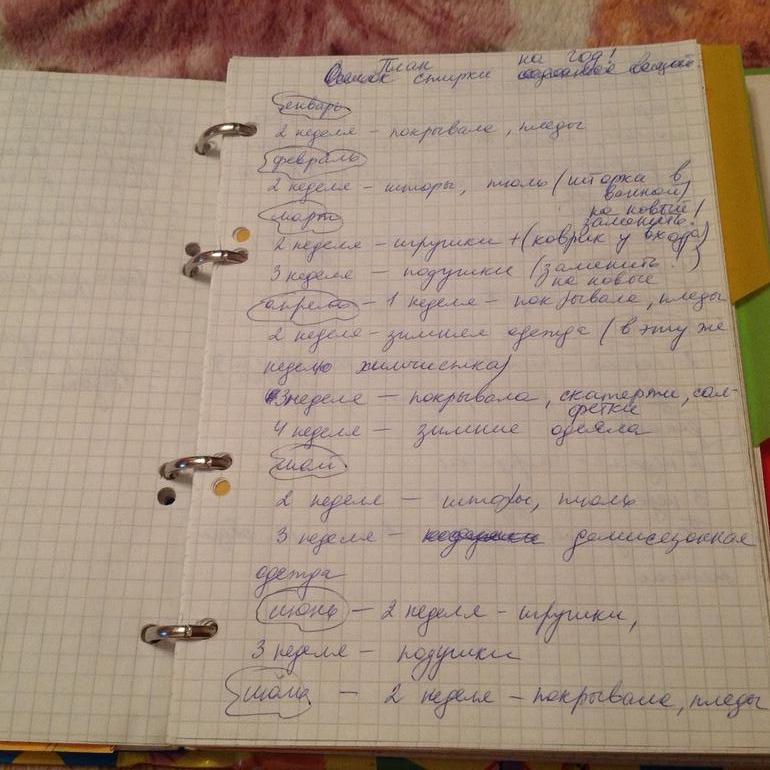 План на год!
стирки
январь
2 неделя – покрывала, пледы
февраль
2 неделя – шторы, тюль (шторки в
ванной)
на новый!
март заменить!
2 неделя – игрушки + (коврик у входа)
3 неделя – подушки (заменить!)
на новые
апрель – 1 неделя – покрывала, пледы
2 неделя – зимняя одежда (в эту же
неделю химчистка)
3 неделя – покрывала, скатерти, сал-
фетки
4 неделя – зимние одеяла
май
2 неделя – шторы, тюль
3 неделя – демисезонная
одежда
июнь – 2 неделя – игрушки,
3 неделя – подушки
июль – 2 неделя – покрывала, пледы